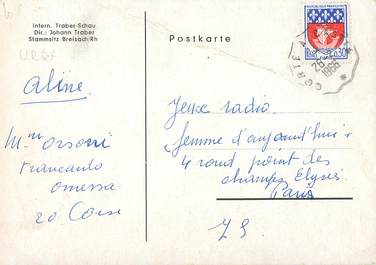 Intern. Traber-Schau
Dir.: Johann Traber
Stammsitz Breisach/Rh
Postkarte
REPUBLIQUE FRANCAISE
0,30
CORTE
1966
Aline
Mme Orsoni
Francardo
omessa
20. Corse
Jeux radio
femme d'aujourd'hui
4 rond point des
champs Elysés
Paris
75